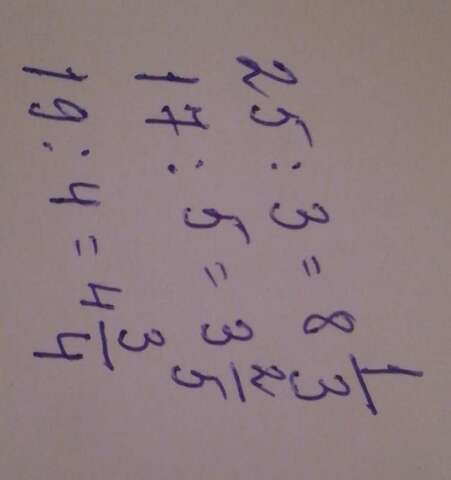 25 : 3 = 8 1/3
17 : 5 = 3 2/5
19 : 4 = 4 3/4